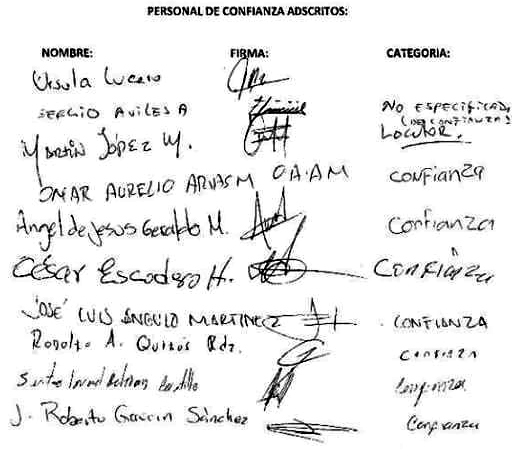 PERSONAL DE CONFIANZA ADSCRITOS:
NOMBRE: FIRMA: CATEGORIA:
Ursula Lucero
SERGIO AVILES A NO ESPECIFICADA
(DE CONFIANZA)
MARTÍN LÓPEZ M. LOCUTOR.
OMAR AURELIO ARVAS M O.A.A.M CONFIANZA
Angel de Jesus Geraldo M. Confianza
César Escodero H. CONFIANZA
JOSÉ LUIS ANGULO MARTINEZ CONFIANZA
Rodolfo A. Quirós Rdz. CONFIANZA
Confianza
J. Roberto Garcin Sánchez Confianza